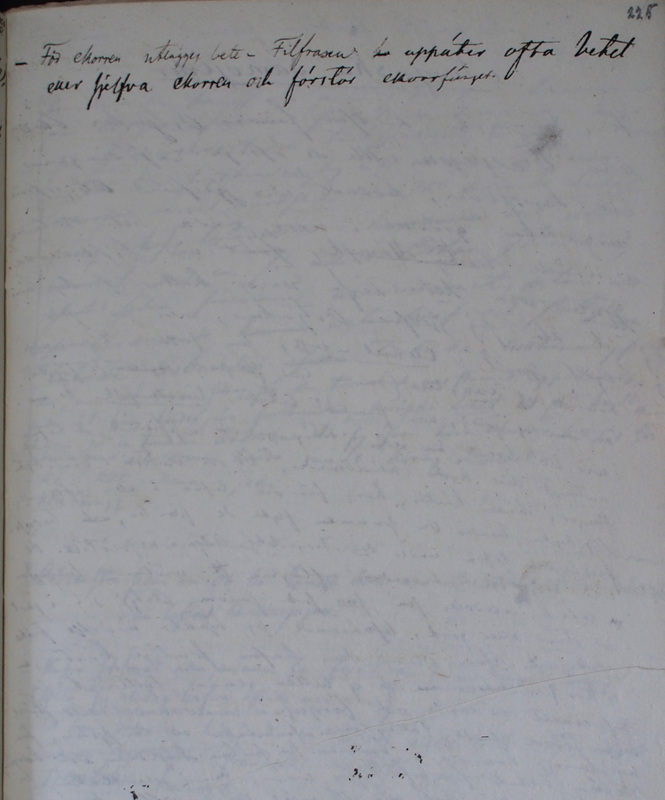 225
– För ekorren utlägges bete – Filfrasen uppäter ofta betet
eller sjelfva ekorren och förstör